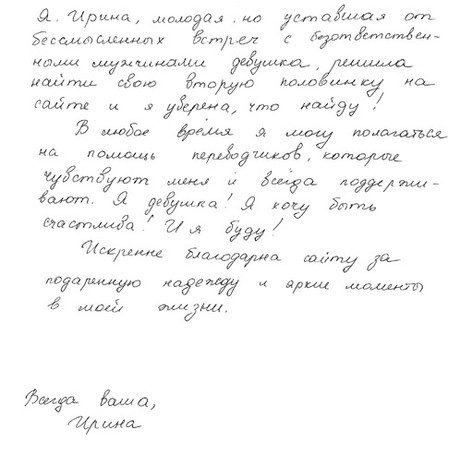 Я, Ирина, молодая, но уставшая от
бессмысленных встреч с безответствен-
ными мужчинами девушка, решила
найти свою вторую половинку на
сайте и я уверена, что найду!
В любое время я могу полагаться
на помощь переводчиков, которые
чувствуют меня и всегда поддержи-
вают. Я девушка! Я хочу быть
счастлива! И я буду!
Искренне благодарна сайту за
подаренную надежду и яркие моменты
в моей жизни.
Всегда ваша,
Ирина